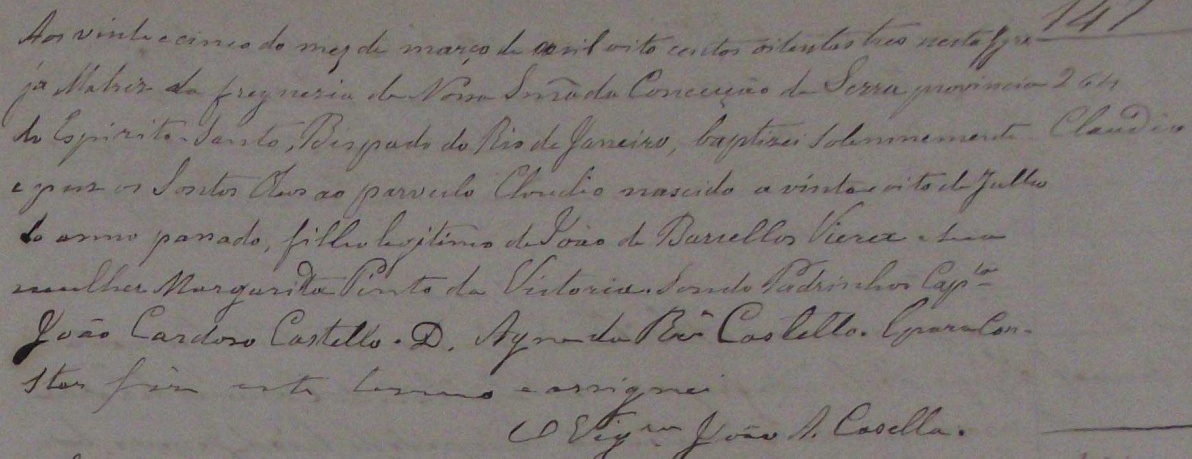 147
Aos vinte e cinco do mez de março de mil oito centos oitenta e tres nesta Igre
ja Matriz da freguezia de Nossa Snrã da Conceição da Serra provincia
do Espirito-Santo, Bispado do Rio de Janeiro, baptizei solemnemente
e puz os Santos Oleos ao parvulo Claudio nascido a vinte e oito de Julho
do anno passado, filho legitimo de João de Barcellos Vieira e sua
mulher Margarida Pinto da Victoria. Sendo Padrinhos Cap.tm
João Cardoso Castello. D. Castello. E para Con-
star fiz este termo e assignei
O Vigrº João A. Casella.
264
Claudio